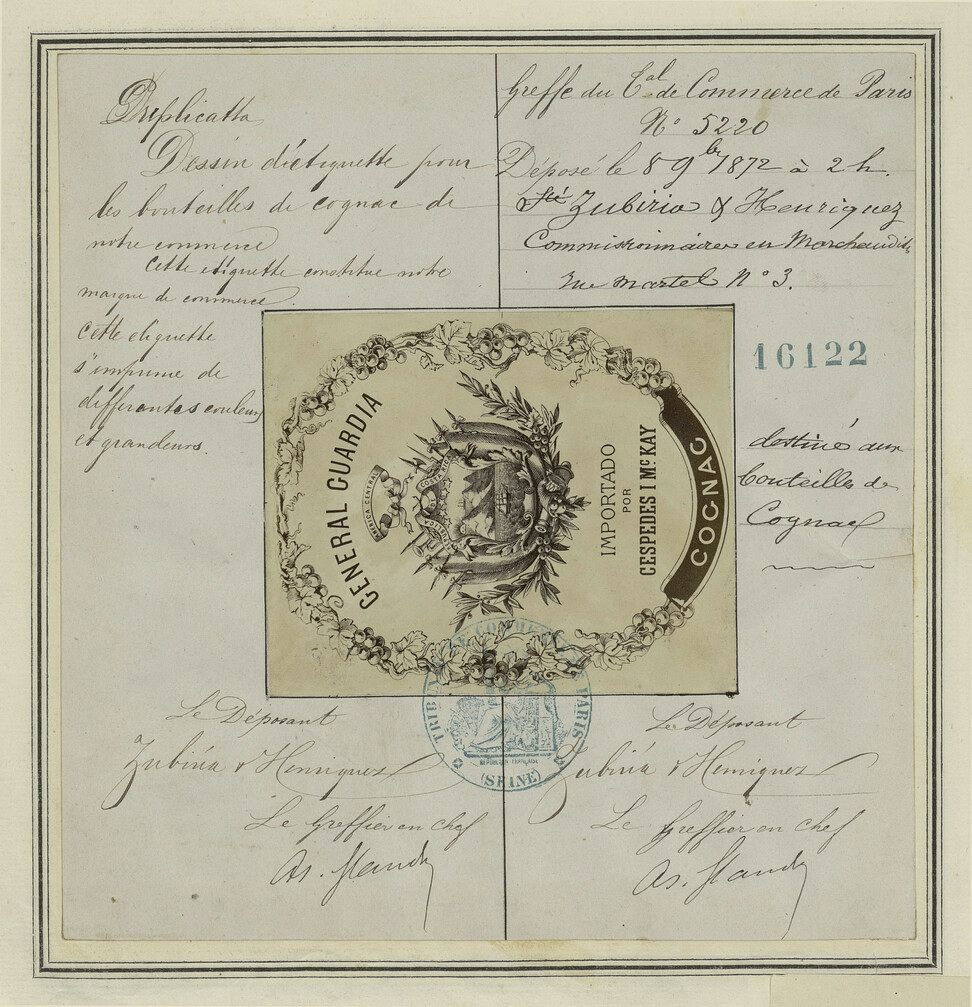 Duplicatta
Dessin d'étiquette pour
les bouteilles de cognac de
notre commerce
cette etiquette constitue notre
marque de commerce.
cette etiquette
s'imprime de
differentes couleurs
et grandeurs.
Greffe du Cal de Commerce de Paris
N° 5220
Déposé le 8 9bre 1872 à 2 h.
Sté Zubiria & Henriquez
Commissionnaires en Marchandises
rue martel N° 3.
16122
destiné aux
bouteilles de
Cognac
GENERAL GUARDIA
AMERICA CENTRAL
COSTA RICA
IMPORTADO
POR
CESPEDES I McKAY
COGNAC
TRIBUNAL DE COMMERCE DE PARIS
RÉPUBLIQUE FRANÇAISE
(SEINE)
Le Déposant
Zubiria & Henriquez
Le Greffier en chef
Le Déposant
Zubiria & Henriquez
Le Greffier en chef